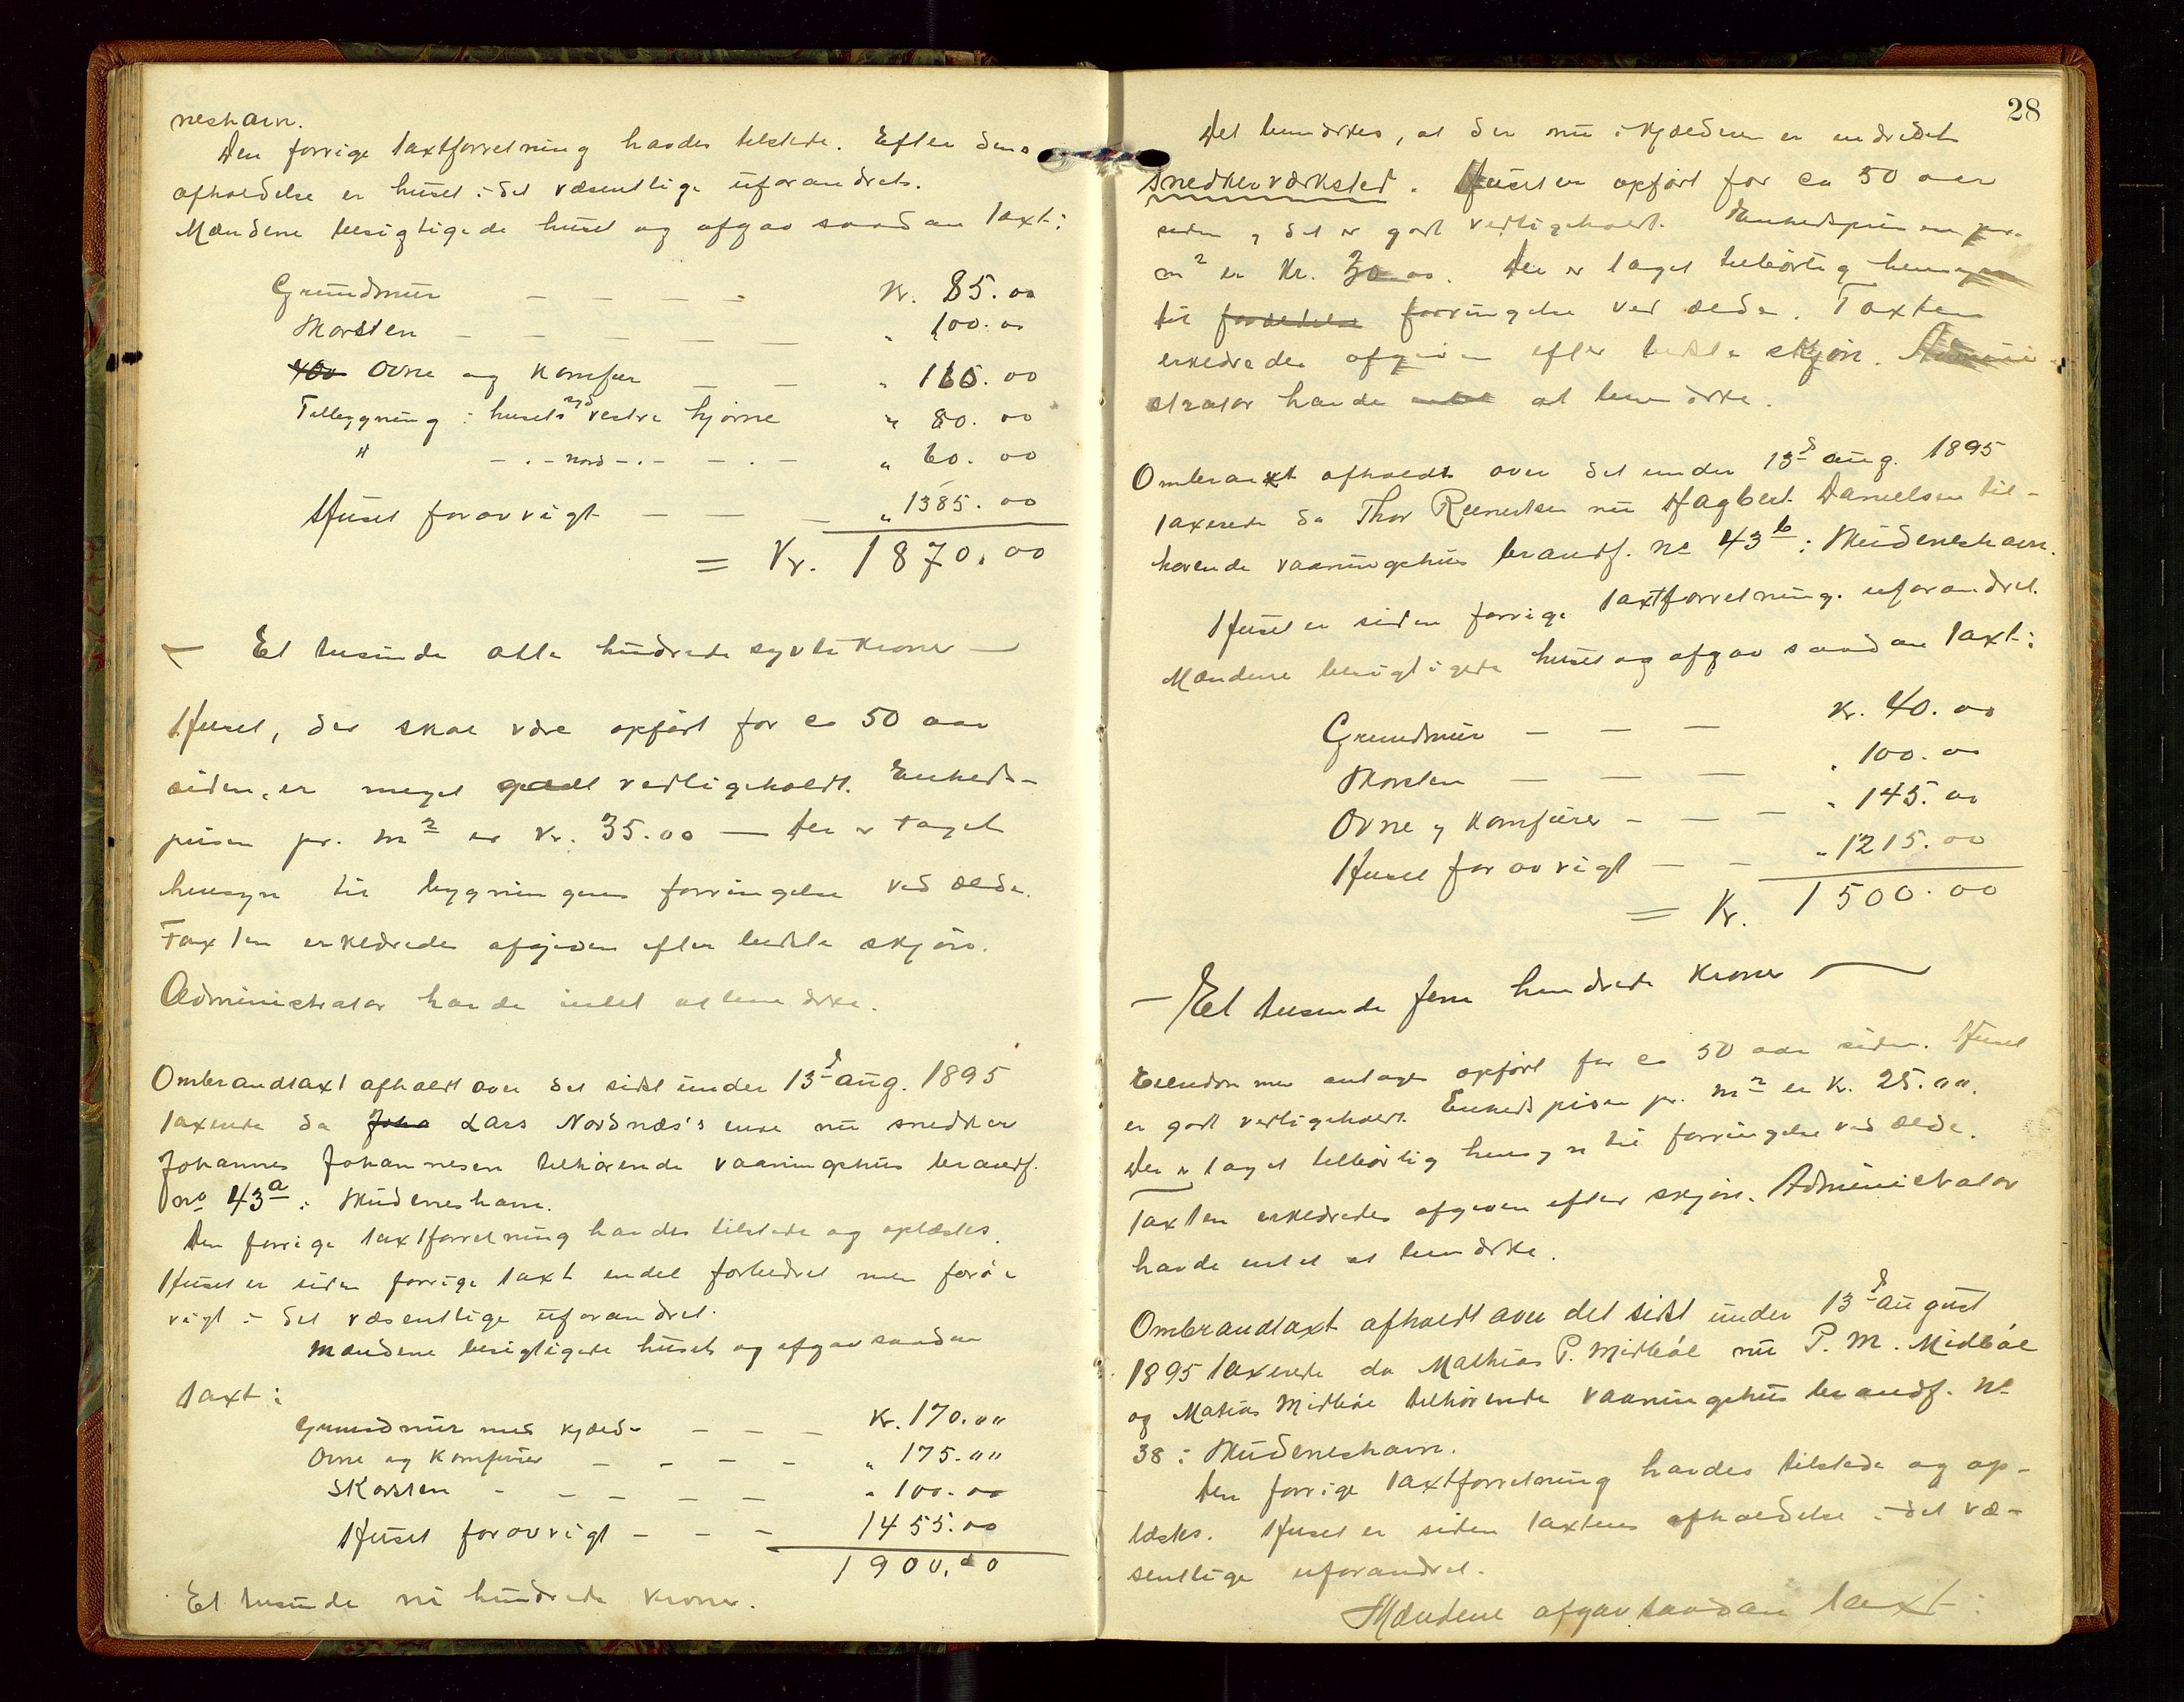 neshavn.
Den forrige taxtforretning havdes tilstede. Efter dens
afholdelse er huset i det væsentlige uforandret.
Mændene besigtigede huset og afgav saadan taxt:
Grundmur — — — — Kr. 85.00
Skorsten — — — — — " 100.00
Ovne og Komfur — — " 160.00
Tilbygning i husets syd vestre hjørne " 80.00
" — . — nord — . — — . — " 60.00
Huset forøvrigt — — — " 1385.00
= Kr. 1870.00
— Et tusinde otte hundrede sytti kroner —
Huset, der skal være opført for ca 50 aar
siden, er meget godt vedligeholdt. Enheds-
prisen pr. m2 er Kr. 35.00 — Der er taget
hensyn til bygningens forringelse ved ælde.
Taxten erklæredes afgiven efter bedste skjøn.
Administrator havde intet at bemærke.
Ombrandtaxt afholdt over det sidst under 13d aug. 1895
taxerede da Lars Nordnæs's enke nu snedker
Johannes Johannesen tilhørende vaaningshus brandf.
no 43a i Skudeneshavn.
Den forrige taxtforretning havdes tilstede og oplæstes.
Huset er siden forrige taxt endel forbedret men forø-
vrigt i det væsentlige uforandret.
Mændene besigtigede huset og afgav saadan
taxt:
Grundmur med kjæld — — — Kr. 170.00
Ovne og Komfurer — — — — " 175.00
Skorsten - — — — — " 100.00
Huset forøvrigt — — — 1455.00
1900.00
Et tusinde ni hundrede kroner.
28
Det bemærkes, at der nu i kjælderen er indredet
snedkerværksted. Huset er opført for ca 50 aar
siden og det er godt vedligeholdt. Enhedsprisen pr.
m2 er Kr. 30.00. Der er taget tilbørlig hensyn
til forringelse ved ælde. Taxten
erklæredes afgiven efter bedste skjøn. Admini-
strator havde intet at bemærke.
Ombrantxt afholdt over det under 13d aug. 1895
taxerede da Thor Reinertsen nu Hagbert Danielsen til-
hørende vaaningshus brandf. no 43b i Skudeneshavn.
Huset er siden forrige taxtforretning uforandret.
Mændene besigtigede huset og afgav saadan taxt:
Grundmur — — — Kr. 40.00
Skorsten — — — " 100.00
Ovne og Komfurer — — — " 145.00
Huset forøvrigt — — " 1215.00
= Kr. 1500.00
— Et tusinde fem hundrede kroner —
Eiendommen antages opført for ca 50 aar siden. Huset
er godt vedligeholdt. Enhedsprisen pr. m2 er Kr. 25.00.
Der er taget tilbørlig hensyn til forringelse ved ælde.
Taxten erklæredes afgiven efter skjøn. Administrator
havde intet at bemærke.
Ombrandtaxt afholdt over det sidst under 13d august
1895 taxerede da Mathias P. Midbøe nu P. M. Midbøe
og Matias Midbøe tilhørende vaaningshus brandf. no
38 i Skudeneshavn.
Den forrige taxtforretning havdes tilstede og op-
læstes. Huset er siden taxtens afholdelse i det væ-
sentlige uforandret.
Mændene afgav saadan taxt: